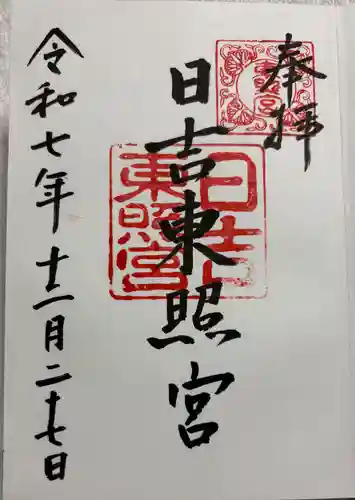 奉拝
日吉東照宮
令和七年十二月二十七日
日吉
東照宮